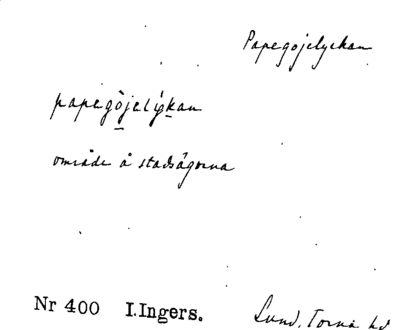 Papegojelyckan
papegòjelýkan
område å stadsägorna
Nr 400 I.Ingers.
Lund, Torna hd